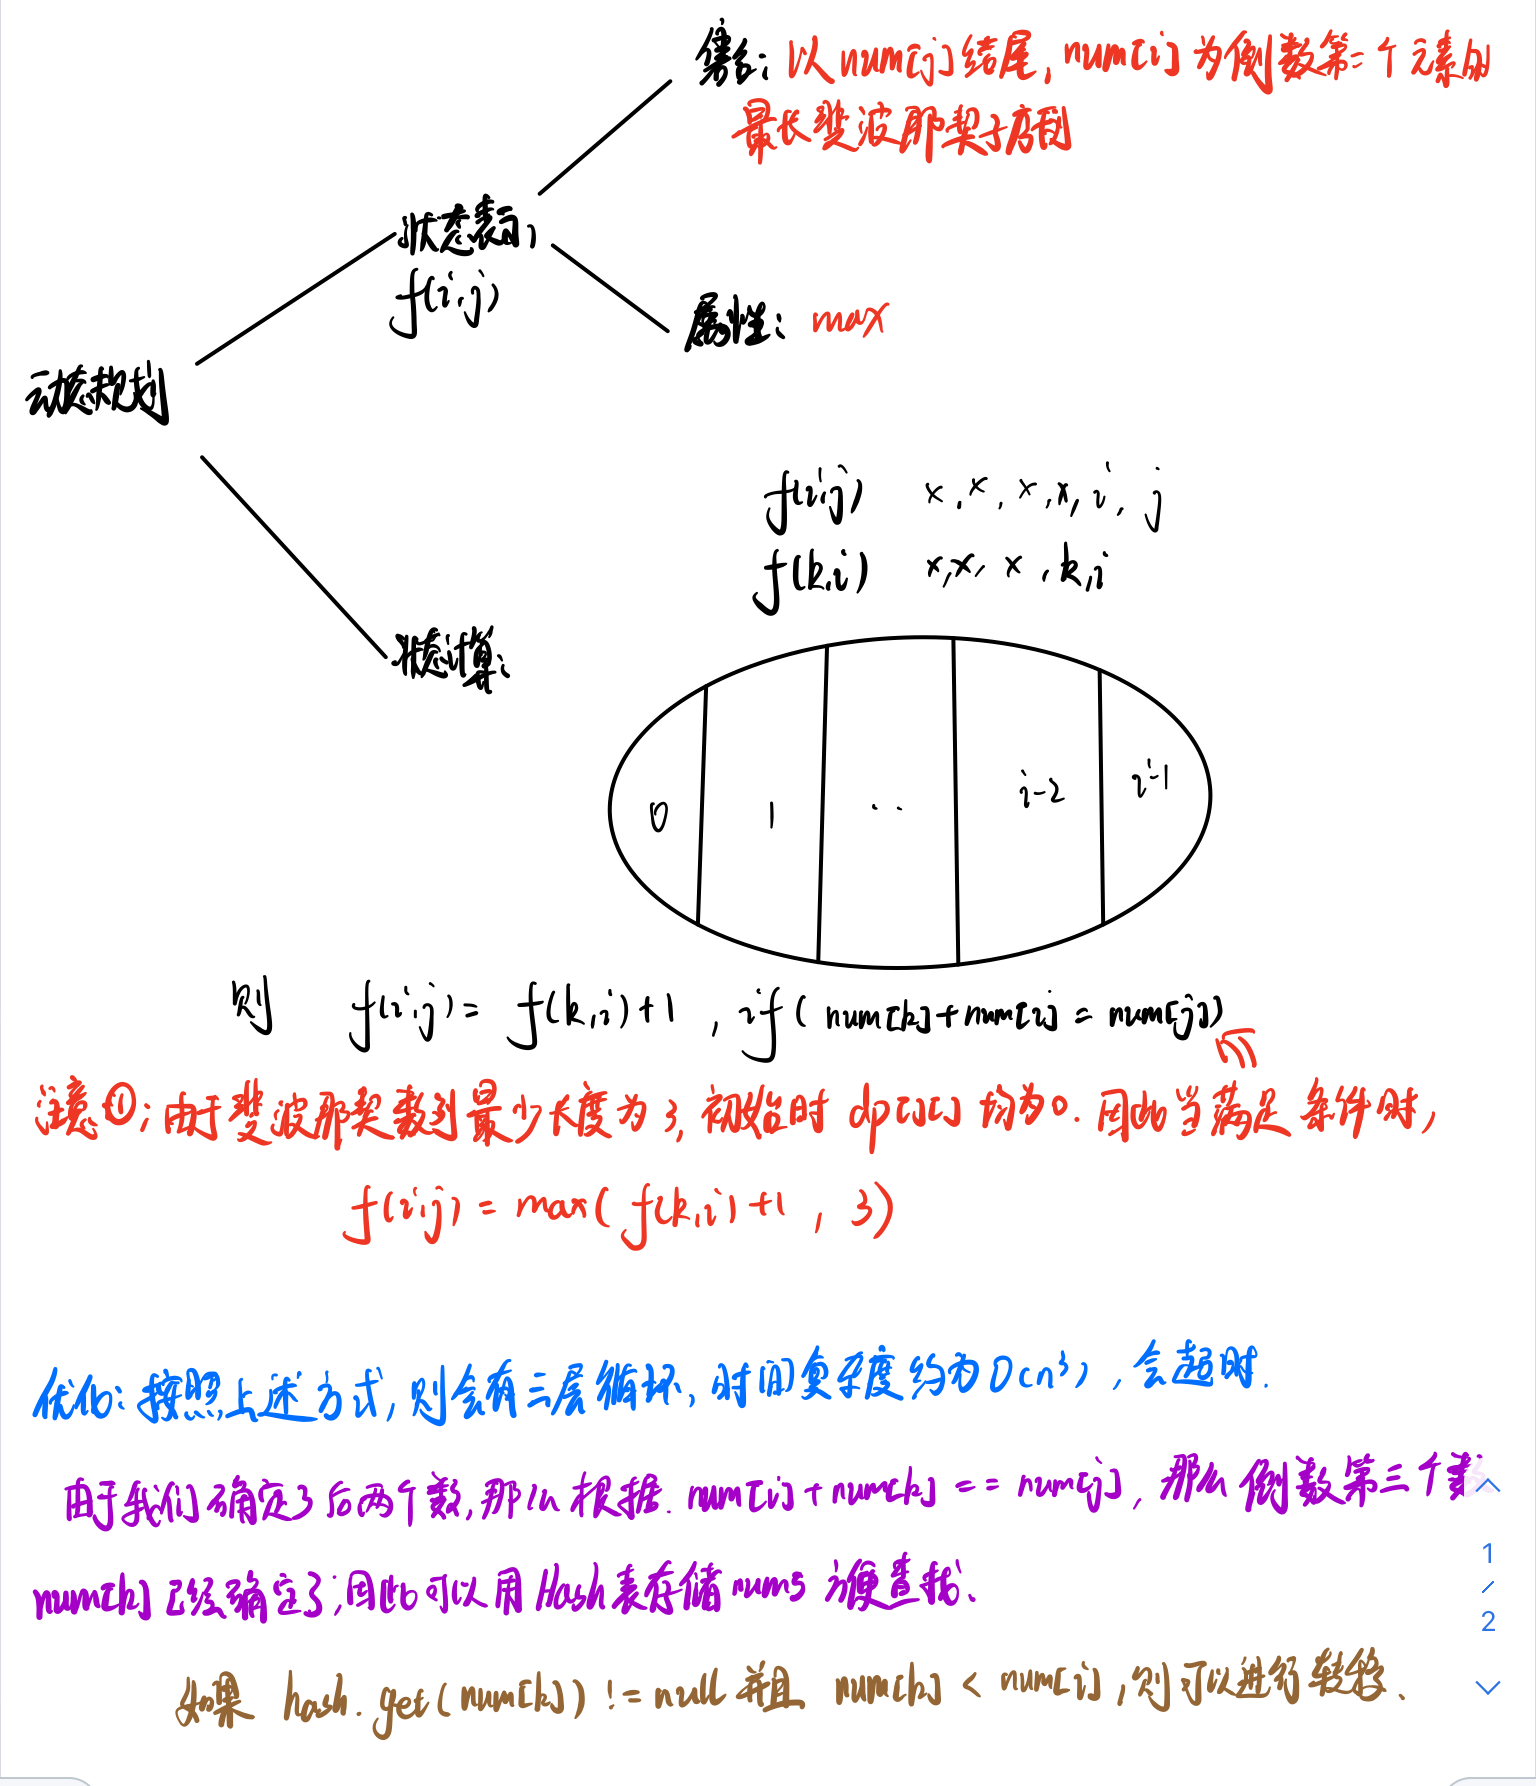 集合:以num[j]结尾,num[i]为倒数第二个元素的
最长斐波那契子序列
状态表示,
f(i,j)
属性:max
动态规划
f(i,j) x,x,x,x,i,j
f(k,i) x,x,x,k,i
状态计算:
0 1 .. i-2 i-1
则 f(i,j)= f(k,i)+1 ,if( num[k]+num[i] = num[j])
注意①:由于斐波那契数列最少长度为3,初始时 dp[][] 均为0.因此当满足条件时,
f(i,j) = max( f(k,i)+1 , 3)
优化:按照上述方式,则会有三层循环,时间复杂度约为O(n³),会超时.
由于我们确定了后两个数,那么根据.num[i]+num[k] == num[j],那么倒数第三个数
num[k]已经确定了,因此可以用Hash表存储nums方便查找.
如果 hash.get(num[k]) !=null 并且 num[k] < num[i],则可以进行转移.
1
/
2